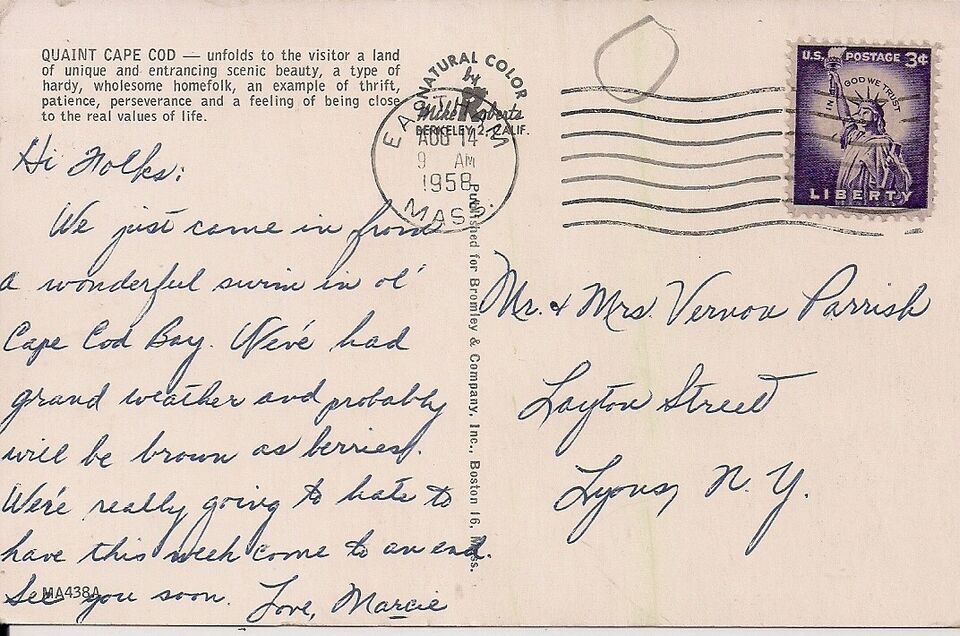 QUAINT CAPE COD — unfolds to the visitor a land
of unique and entrancing scenic beauty, a type of
hardy, wholesome homefolk, an example of thrift,
patience, perseverance and a feeling of being close
to the real values of life.
NATURAL COLOR
by
Mike Roberts
BERKELEY 2, CALIF.
EASTHAM
AUG 14
9 AM
1958
MASS.
U.S. POSTAGE 3¢
IN GOD WE TRUST
LIBERTY
Hi Folks:
We just came in from
a wonderful swim in ol'
Cape Cod Bay. We've had
grand weather and probably
will be brown as berries.
We're really going to hate to
have this week come to an end.
See you soon. Love, Marcie
MA438A
Published for Bromley & Company, Inc., Boston 16, Mass.
Mr. & Mrs. Vernon Parrish
Layton Street
Lyons, N. Y.